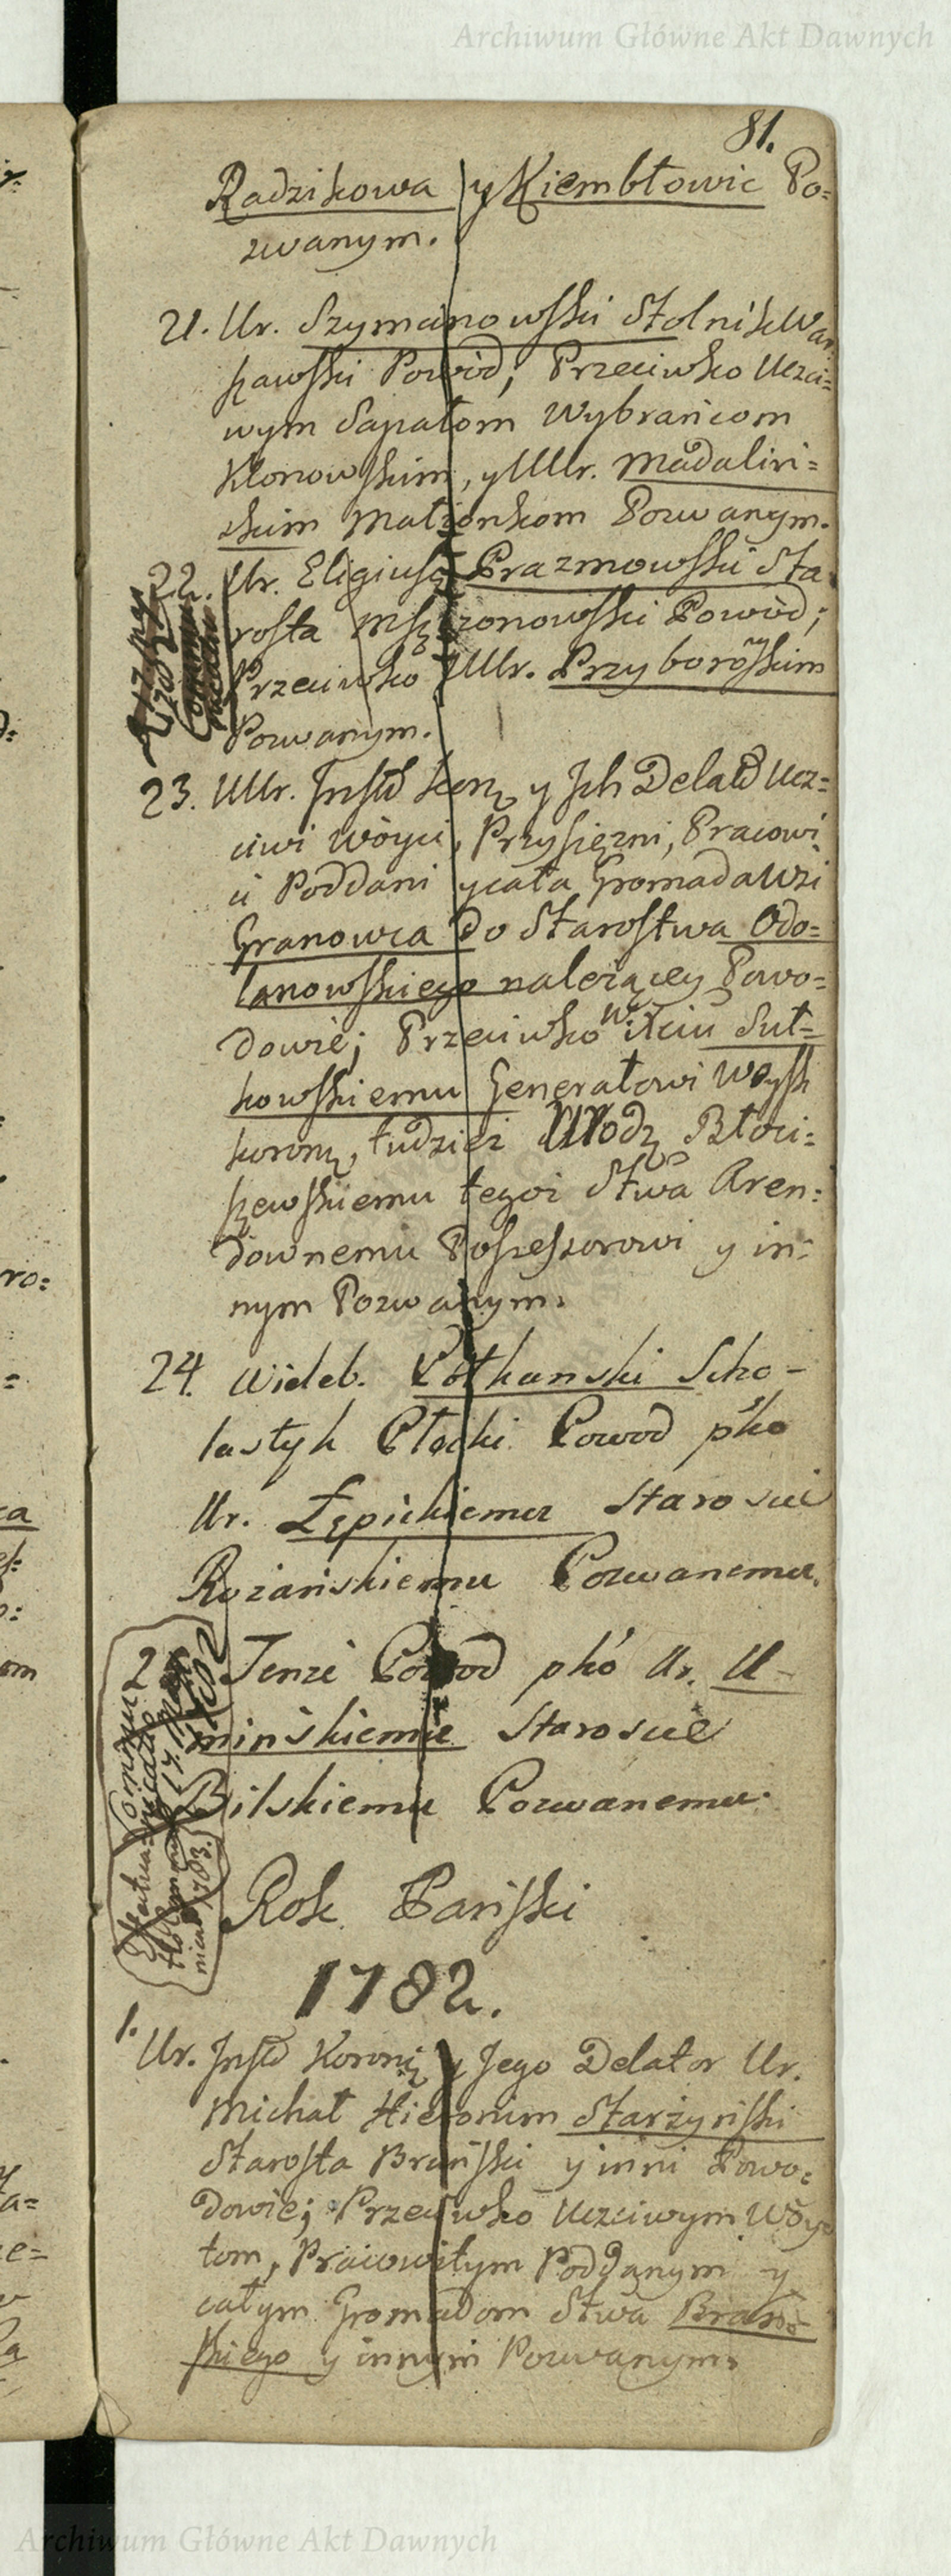 Archiwum Główne Akt Dawnych
81.
Radzikowa y Kiembłowic Po=
zwanym.
21. Ur. Szymanowski Stolnik War
szawski Powód; Przeciwko Uczci=
wym Sapałom Wybrańcom
Klonowskim, y UUr. Madaliń=
skim Małżonkom Pozwanym.
22. Ur. Eligiusz Prazmowski Sta
rosta Mszczonowski Powód;
Przeciwko UUr. Przyborowskim
Pozwanym.
23. UUr. Insty Koro. y Ich Delat Ucz=
ciwi Wóyci, Przysięzni, Pracowi
ci Poddani y cała Gromada Wsi
Granowca do Starostwa Odo=
lanowskiego należącey Powo=
dowie; Przeciwko W. Xciu Suł=
kowskiemu Generałowi Woysk
koron, tudzież Urodz Błoci=
szewskiemu tegoż Stwa Aren=
downemu Possessorowi y in=
nym Pozwanym.
24. Wieleb. Potkanski Scho-
lastyk Płocki Powod pko
Ur. Łępickiemu Staroscie
Rożańskiemu Pozwanemu.
Tenże Powod pko Ur. U-
mińskiemu Staroscie
Bilskiemu Pozwanemu.
Rok Pański
1782.
1. Ur. Insty Koron y Jego Delator Ur.
Michał Hieronim Starzyński
Starosta Brański y inni Powo=
dowie; Przeciwko Uczciwym Wóy
tom, Pracowitym Poddanym y
całym Gromadom Stwa Brań=
skiego y innym Pozwanym.
Archiwum Główne Akt Dawnych